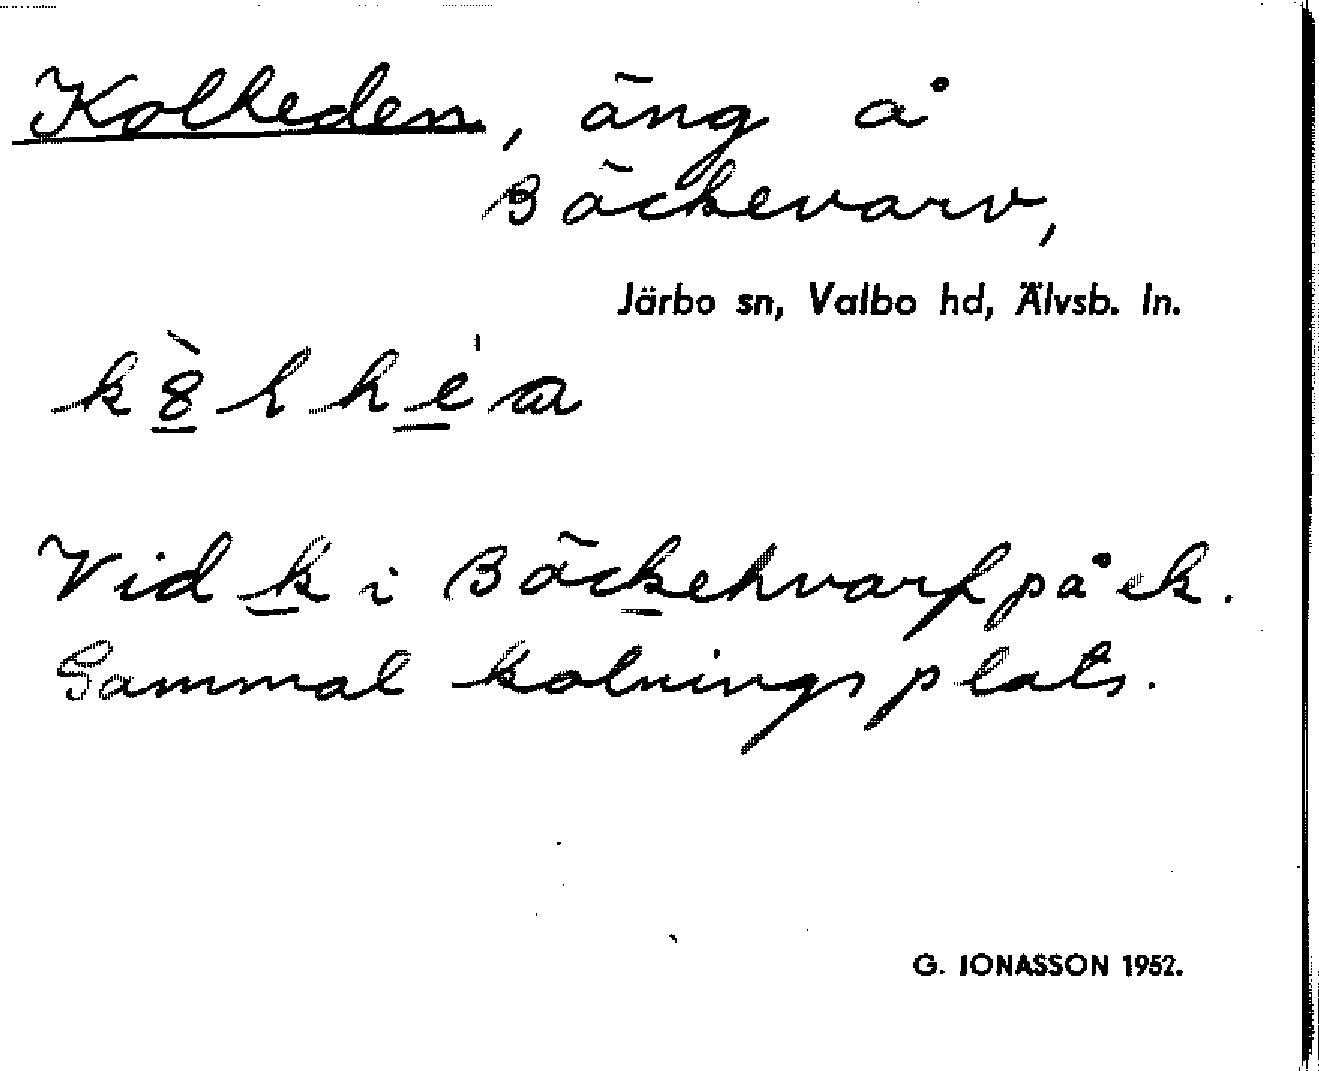 Kolheden, äng å
Bäckevarv,
Järbo sn, Valbo hd, Älvsb. ln.
Vid k i Bäckehvarf på ek.
Gammal kolningsplats.
G. IONASSON 1952.